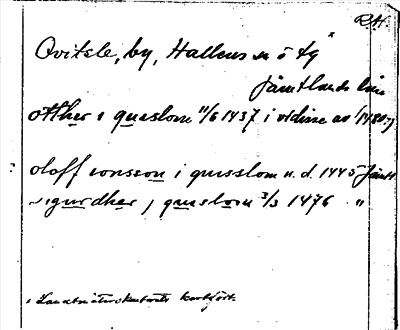 R.H.
Qvitsle, by, Hallens sn o tg x
Jämtlands län
otther i quislom 11/6 1437 i vidisse av 1480-?
oloff ionsson i quisslom u.d. 1445 Jämtl
sigurdher j quislom 3/3 1476 "
i Landtmäterikontorets kartfört.